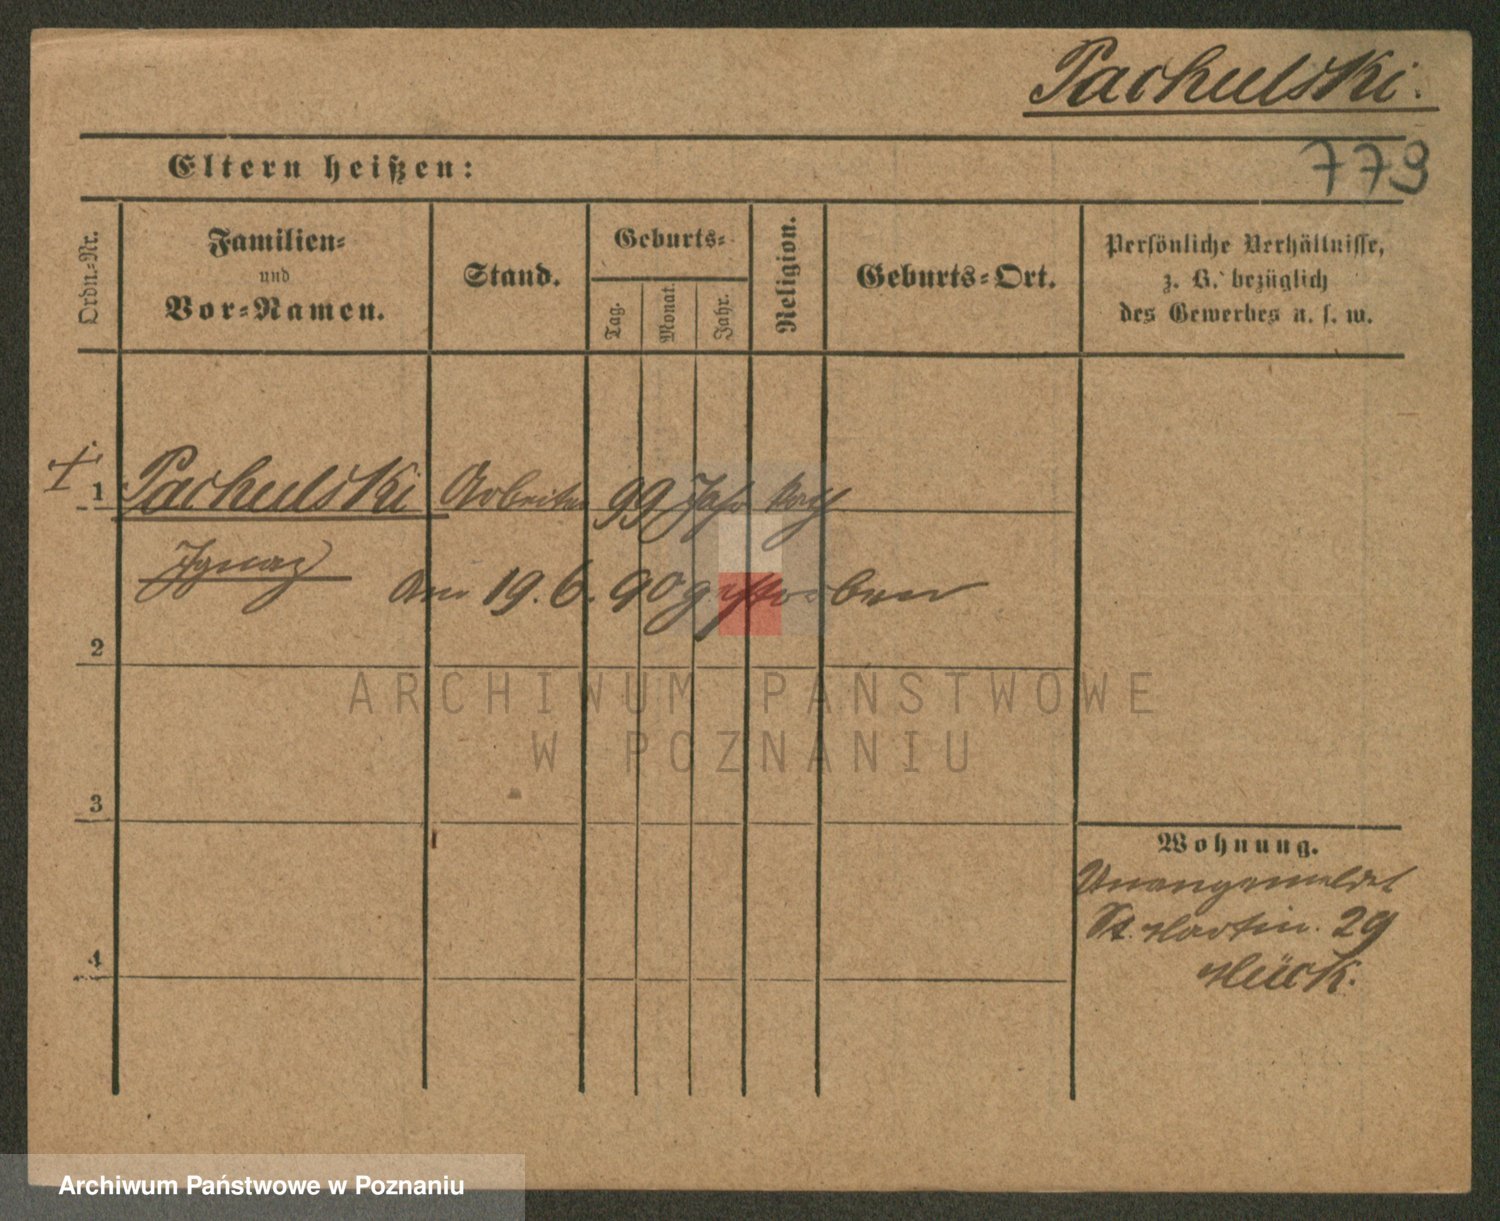 Pachulski.
779
Eltern heißen:
Ordn.-Nr.
Familien-
und
Vor-Namen.
Stand.
Geburts-
Tag.
Monat.
Jahr.
Religion.
Geburts-Ort.
Persönliche Verhältnisse,
z. B. bezüglich
des Gewerbes u. s. w.
1 Pachulski Arbeiter 99 Jahr kath
Ignaz
Am 19. 6. 90 gestorben
2
3
4
Wohnung.
Unangemeldet
St. Martin. 29
ARCHIWUM PAŃSTWOWE
W POZNANIU
Archiwum Państwowe w Poznaniu